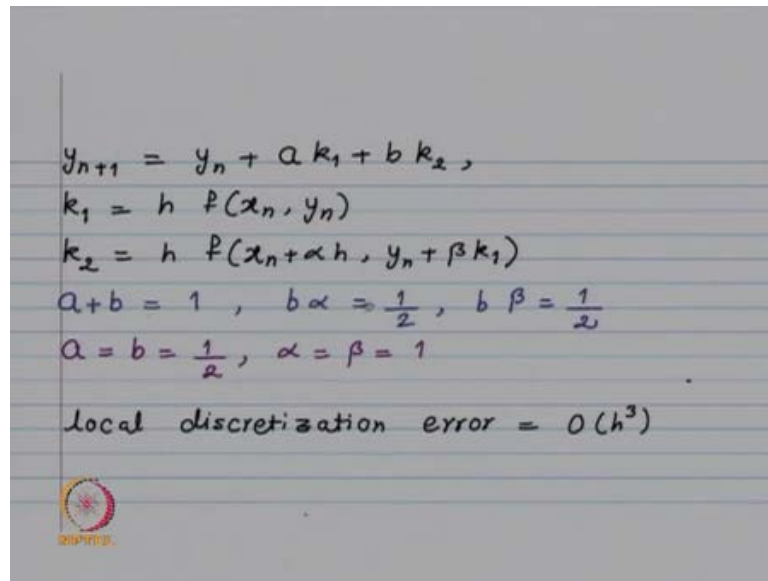 y_{n+1} = y_n + a k_1 + b k_2 ,
k_1 = h f(x_n, y_n)
k_2 = h f(x_n + αh, y_n + βk_1)
a + b = 1 , bα = 1/2 , bβ = 1/2
a = b = 1/2 , α = β = 1
local discretization error = O(h^3)
NPTEL